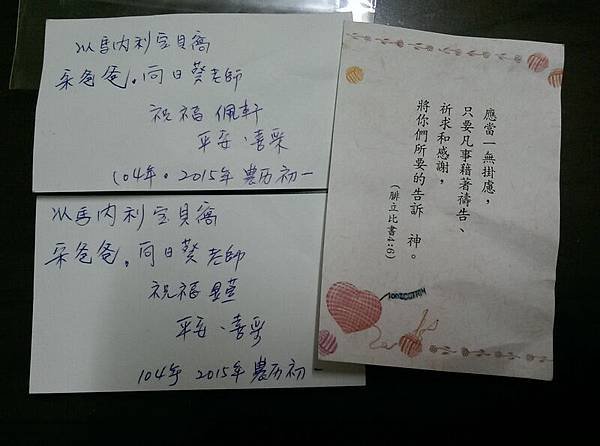 以馬內利宝貝窩
采爸爸。向日葵老師
祝福 佩軒
平安、喜樂
104年。2015年 農历初一
以馬內利宝貝窩
采爸爸。向日葵老師
祝福
平安、喜樂
104年 2015年 農历初一
應當一無掛慮，
只要凡事藉著禱告、
祈求和感謝，
將你們所要的告訴 神。
(腓立比書4:6)